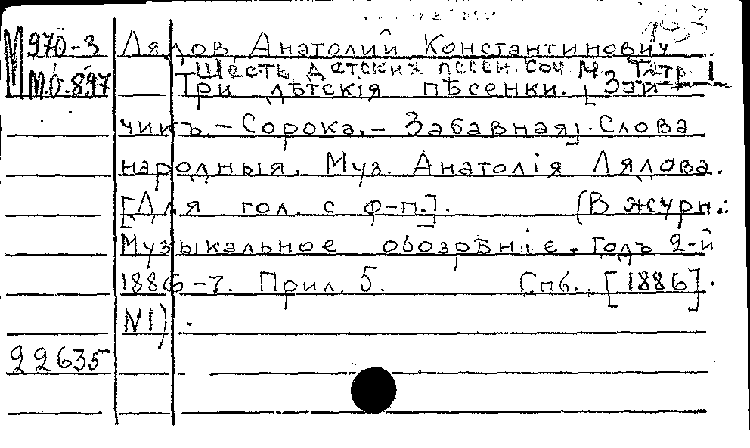 М 970-3 Лядов Анатолий Константинович
Шесть детских песен. Соч.
М0.897 Три дѣтскія пѣсенки. [Зай-
чикъ. – Сорока. – Забавная]. Слова
народныя. Муз. Анатолія Лядова.
[Для гол. с ф-п.]. (В журн.:
Музыкальное обозрѣніе. Годъ 2-й
1886-7. Прил. 5. Спб., [1886].
N1).
22635